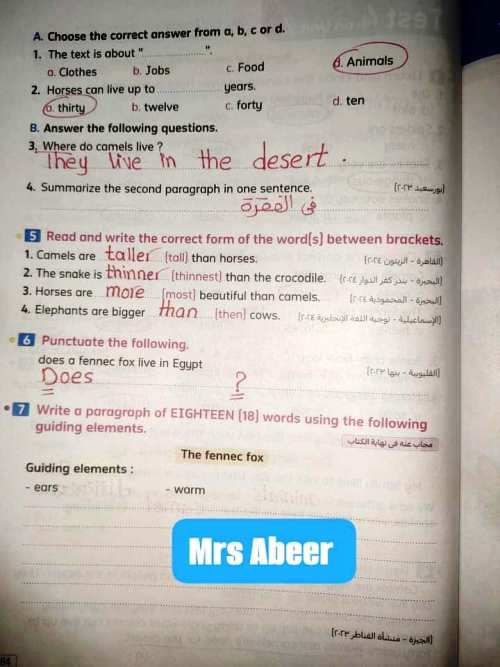 A. Choose the correct answer from a, b, c or d.
1. The text is about "..................".
a. Clothes b. Jobs c. Food d. Animals
2. Horses can live up to .................. years.
a. thirty b. twelve c. forty d. ten
B. Answer the following questions.
3. Where do camels live ?
They live in the desert .
4. Summarize the second paragraph in one sentence. (بورسعيد ٢٠٢٣)
فى الفقرة
5 Read and write the correct form of the word(s) between brackets.
1. Camels are taller (tall) than horses. (القاهرة - الزيتون ٢٠٢٤)
2. The snake is thinner (thinnest) than the crocodile. (البحيرة - بندر كفر الدوار ٢٠٢٤)
3. Horses are more (most) beautiful than camels. (البحيرة - المحمودية ٢٠٢٤)
4. Elephants are bigger than (then) cows. (الإسماعيلية - توجيه اللغة الإنجليزية ٢٠٢٤)
6 Punctuate the following.
does a fennec fox live in Egypt (القليوبية - بنها ٢٠٢٣)
Does ?
7 Write a paragraph of EIGHTEEN (18) words using the following
guiding elements.
مجاب عنه فى نهاية الكتاب
The fennec fox
Guiding elements :
- ears - warm
Mrs Abeer
(الجيزة - منشأة القناطر ٢٠٢٣)
64